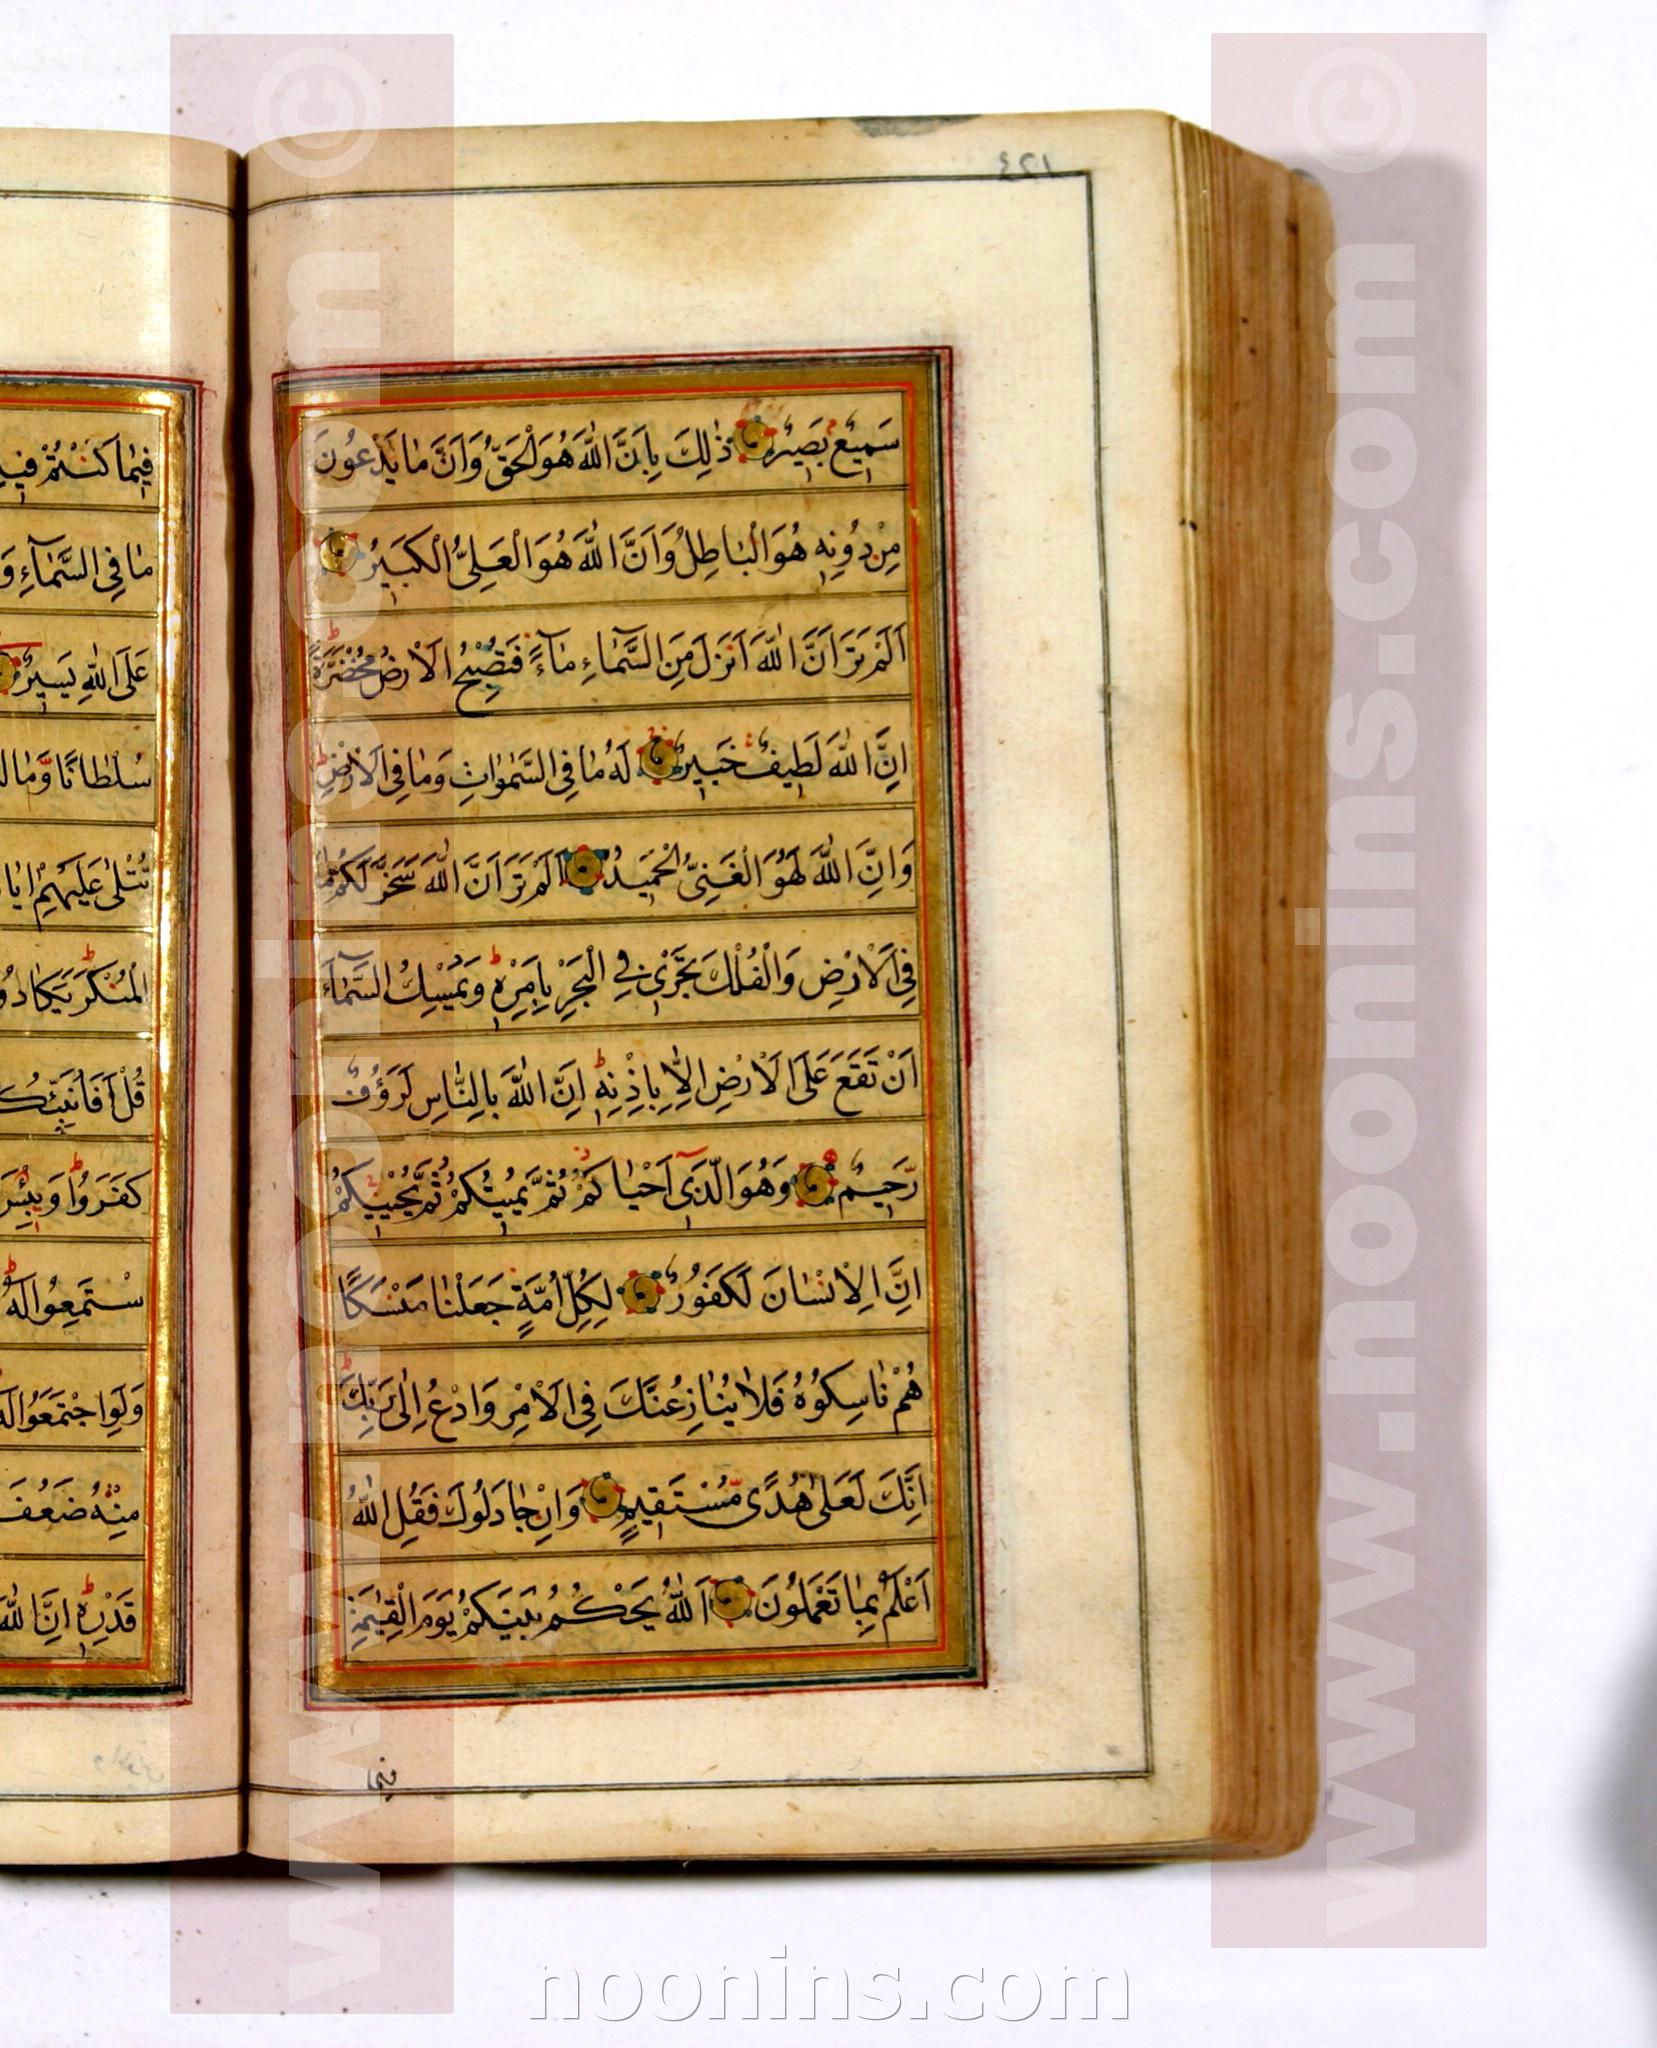 سَمِيعٌ بَصِيرٌ ذٰلِكَ بِاَنَّ اللّٰهَ هُوَ الْحَقُّ وَاَنَّ مٰا يَدْعُونَ
مِنْ دُونِهِ هُوَ الْبٰاطِلُ وَاَنَّ اللّٰهَ هُوَ الْعَلِيُّ الْكَبِيرُ
اَلَمْ تَرَ اَنَّ اللّٰهَ اَنْزَلَ مِنَ السَّمٰآءِ مٰآءً فَتُصْبِحُ الْاَرْضُ مُخْضَرَّةً
اِنَّ اللّٰهَ لَطِيفٌ خَبِيرٌ لَهُ مٰا فِي السَّمٰوٰاتِ وَمٰا فِي الْاَرْضِ
وَاِنَّ اللّٰهَ لَهُوَ الْغَنِيُّ الْحَمِيدُ اَلَمْ تَرَ اَنَّ اللّٰهَ سَخَّرَ لَكُمْ مٰا
فِي الْاَرْضِ وَالْفُلْكَ تَجْرِي فِي الْبَحْرِ بِاَمْرِهِ وَيُمْسِكُ السَّمٰآءَ
اَنْ تَقَعَ عَلَى الْاَرْضِ اِلّٰا بِاِذْنِهِ اِنَّ اللّٰهَ بِالنّٰاسِ لَرَؤُفٌ
رَحِيمٌ وَهُوَ الَّذِي اَحْيٰاكُمْ ثُمَّ يُمِيتُكُمْ ثُمَّ يُحْيِيكُمْ
اِنَّ الْاِنْسٰانَ لَكَفُورٌ لِكُلِّ اُمَّةٍ جَعَلْنٰا مَنْسَكًا
هُمْ نٰاسِكُوهُ فَلٰا يُنٰازِعُنَّكَ فِي الْاَمْرِ وَادْعُ اِلٰى رَبِّكَ
اِنَّكَ لَعَلٰى هُدًى مُسْتَقِيمٍ وَاِنْ جٰادَلُوكَ فَقُلِ اللّٰهُ
اَعْلَمُ بِمٰا تَعْمَلُونَ اَللّٰهُ يَحْكُمُ بَيْنَكُمْ يَوْمَ الْقِيٰمَةِ
فيما
فِيمٰا كُنْتُمْ فِيهِ
مٰا فِي السَّمٰآءِ وَ
عَلَى اللّٰهِ يَسِيرٌ
سُلْطٰانًا وَمٰا
تُتْلٰى عَلَيْهِمْ اٰيٰا
الْمُنْكَرَ يَكٰادُو
قُلْ اَفَاُنَبِّئُكُ
كَفَرُوا وَبِئْسَ
سْتَمِعُوا لَهُ
وَلَوِ اجْتَمَعُوا لَهُ
مِنْهُ ضَعُفَ
قَدْرِهِ اِنَّ اللّٰهَ
www.noonins.com ©
www.noonins.com ©
noonins.com